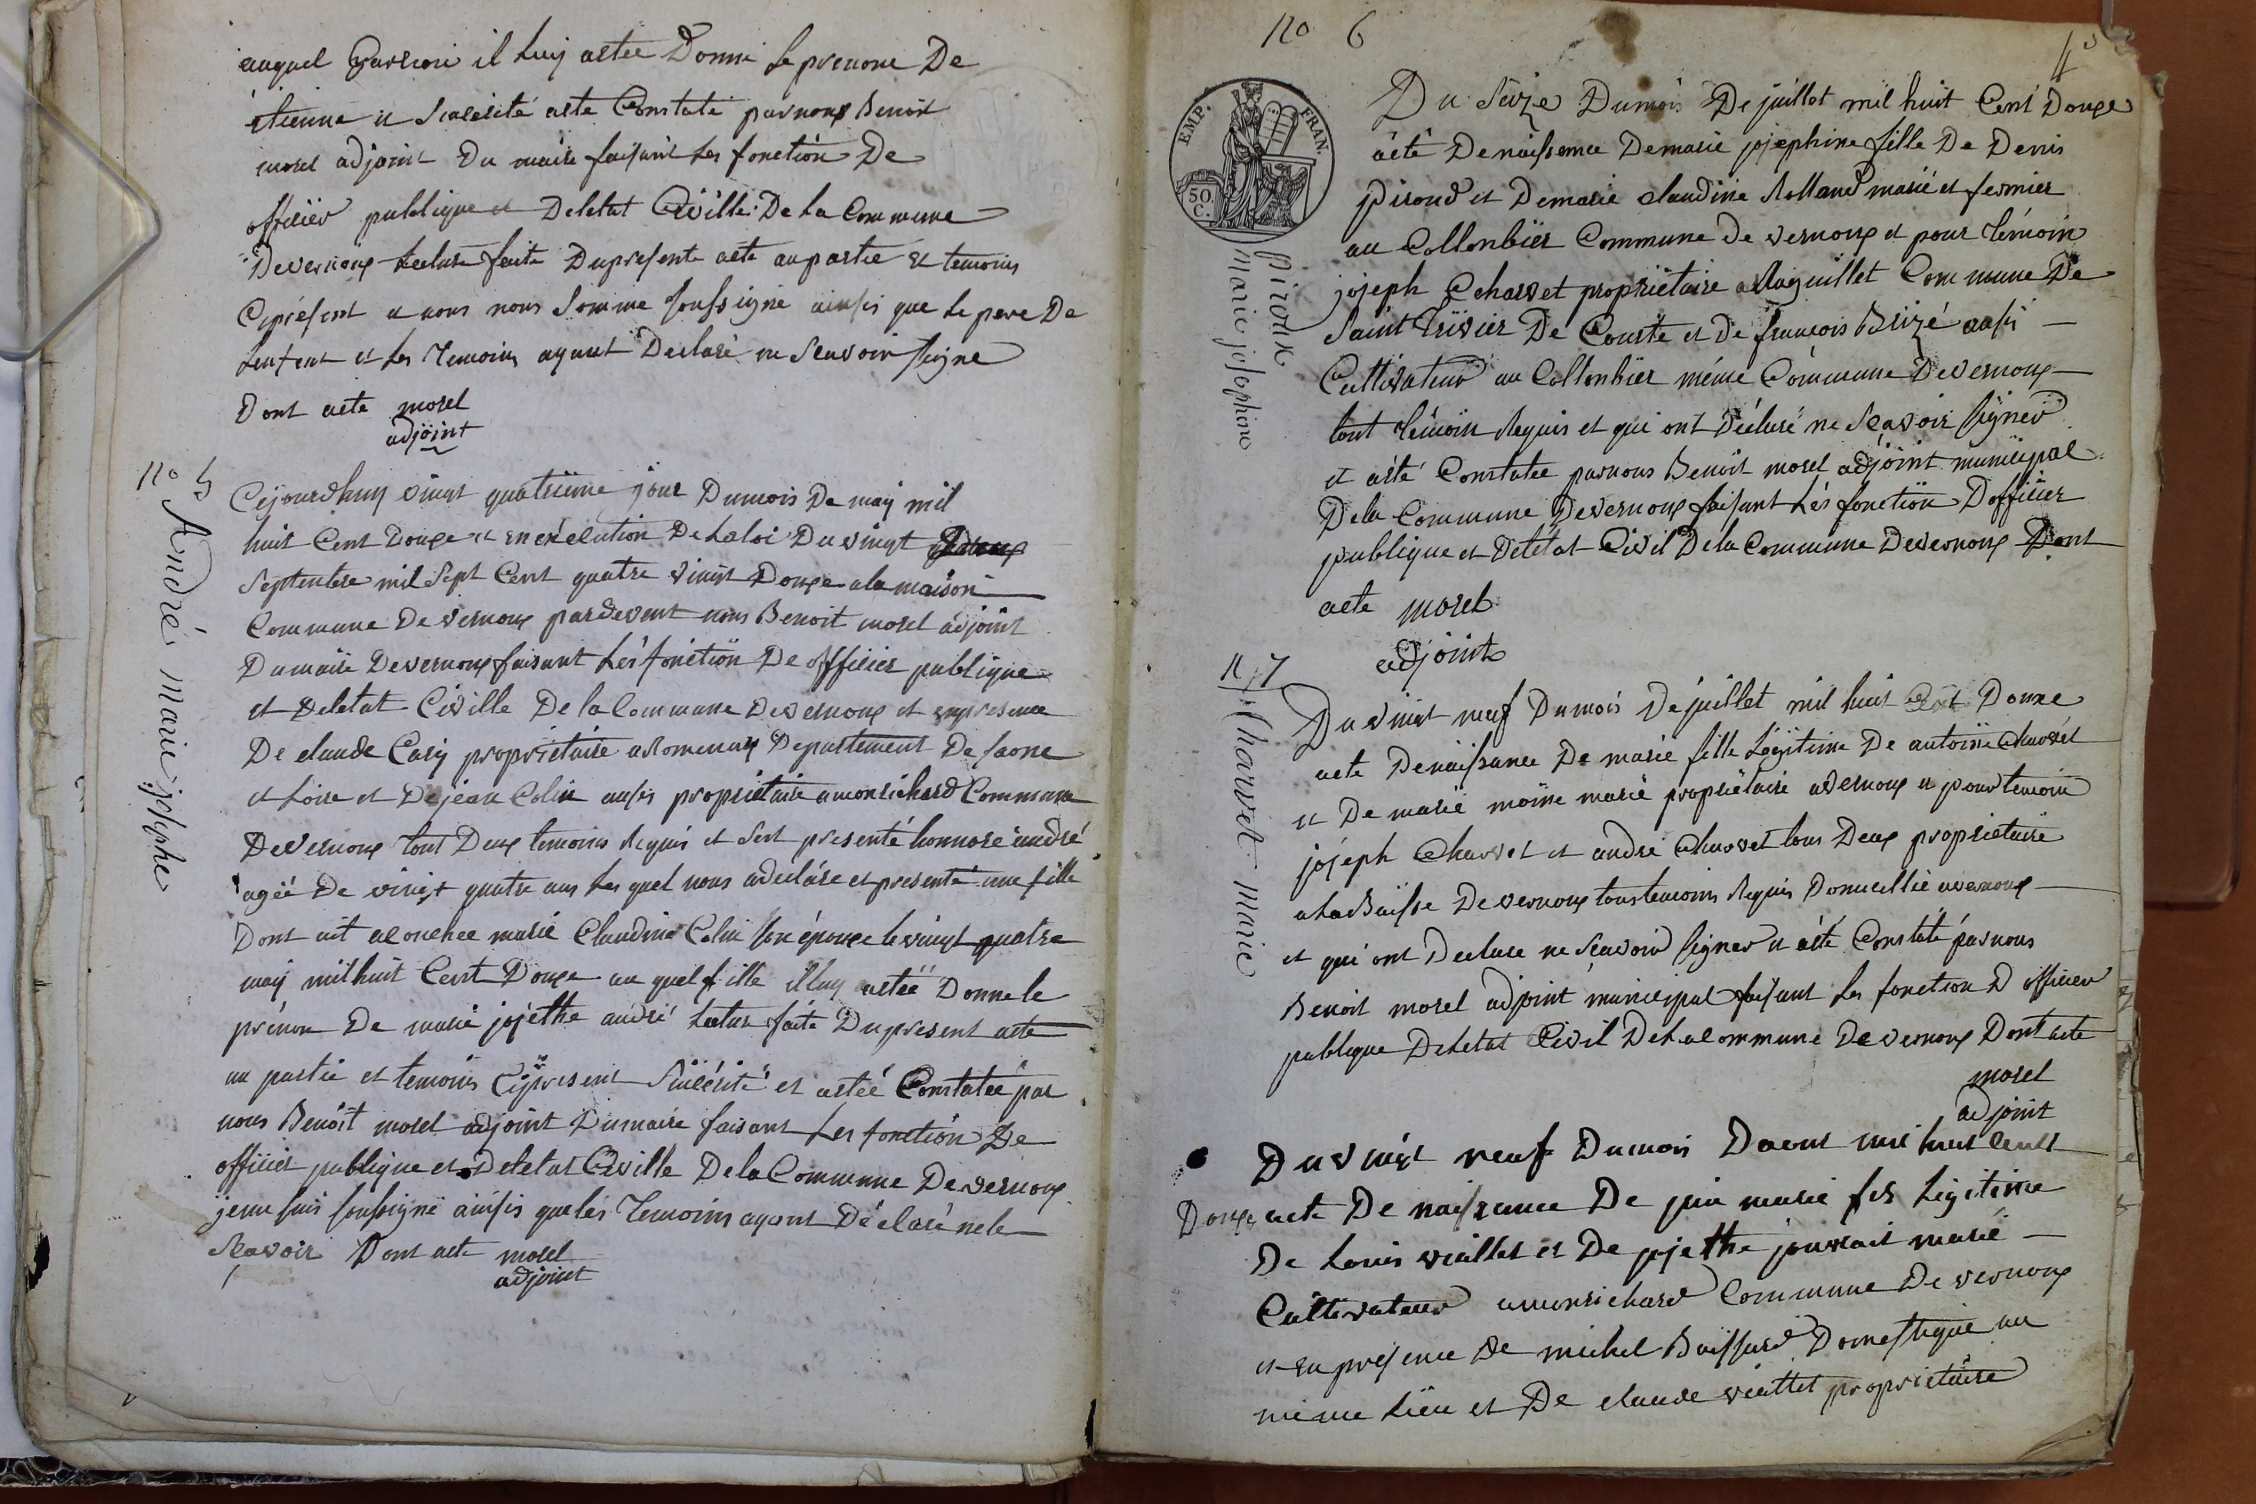 auquel Garson il luy astée Donné le prenom De
étienne et Sceserité acte Constaté par nous Benoit
morel adjoint Du maire faisant les fonction De
officier publique et Deletat Civille De La Commune
De vernoux Lecture faite Dupresente acte au partie et temoins
Cyprésent et nous nous Somme Soussigné ainsis que le pere De
Lenfent et les Temoins ayant Declaré ne Scavoir signe
Dont acte morel
adjoint
no 5
André marie josephe
Cejourdhuy vingt quatrieme jour Dumois De may mil
huit Cent Douze et en exécution De La loi Du vingt
Septembre mil Sept Cent quatre vingt Douze a la maison
Commune De vernoux pardevent nous Benoit morel adjoint
Du maire De vernoux faisant Lés fonction De officier publique
et Deletat Civille De la Commune De vernoux et en presence
De claude Cary propriétaire a Romenay Departement De Saone
et Loire et De jean Colin ausis propriétaire a monrichard Commune
De vernoux tout Deux temoins Requis et Sest presenté honnore andré
agéé De vingt quatre ans Les quel nous a declare et presenté une fille
Dont ait acouchee marie Claudine Colin son épouze le vingt quatre
may mil huit Cent Douze au quel fille illuy astéé Donne le
prénom De marie jojethe andré Lectur faite Du present acte
au partie et temoins Cypresent Sincérité et astéé Constatée par
nous Benoit morel adjoint Du maire faisant Les fonction De
officier publique et Deletat Civille De la Commune De vernoux
jeme suis soussigné ainsis que lés Temoins ayant Déclaré ne le
Scavoir Dont acte morel
adjoint
no 6
EMP. FRAN.
50. C.
Piroud
Marie josephine
Du Seize Dumois De juillet mil huit Cent Douze
acte De naissence De marie jojephine fille De Denis
Piroud et De marie claudine Rolland marié et fermier
au Collonbier Commune de vernoux et pour témoin
jojeph Charvet propriétaire a Commune De
Saint Trivier De Courte et De francois Brizé ausis
Cultivateur au Collonbier méme Commune De vernoux
tout témoin Requis et qui ont Déclaré ne Scavoir Signer
et acté Constatee par nous Benoit morel adjoint municipal
De la Commune De vernoux faisant Lés fonction Dofficier
publique et Detetat Civil De la Commune De vernoux Dont
acte morel
adjoint
n 7
Charvet marie
Du vingt neuf Dumois De juillet mil huit Cent Douxe
acte De naissance De marie fille Légitime De antoine Charvet
et De marie moine marié propriétaire a vernoux et pour temoin
joséph Charvet et andre Charvet tous Deux propriétaire
a La Baisse De vernoux tous temoins Requis Domicillié a vernoux
et qui ont Declare ne Scavoir Signer et acté Constaté par nous
Benoit morel adjoint municipal faisant Les fonction D officier
publique Deletat Civil De La commune De vernoux Dont acte
morel
adjoint
Du vingt neuf Dumois Daout mil huit Cent
Douze acte De naissance De marie fils Légitime
De Louis viallet et De jojethe marié
Cultivateur a monrichard Commune De vernoux
et en présence De michel Buissard Domestique au
même Lieu et De claude viallet propriétaire